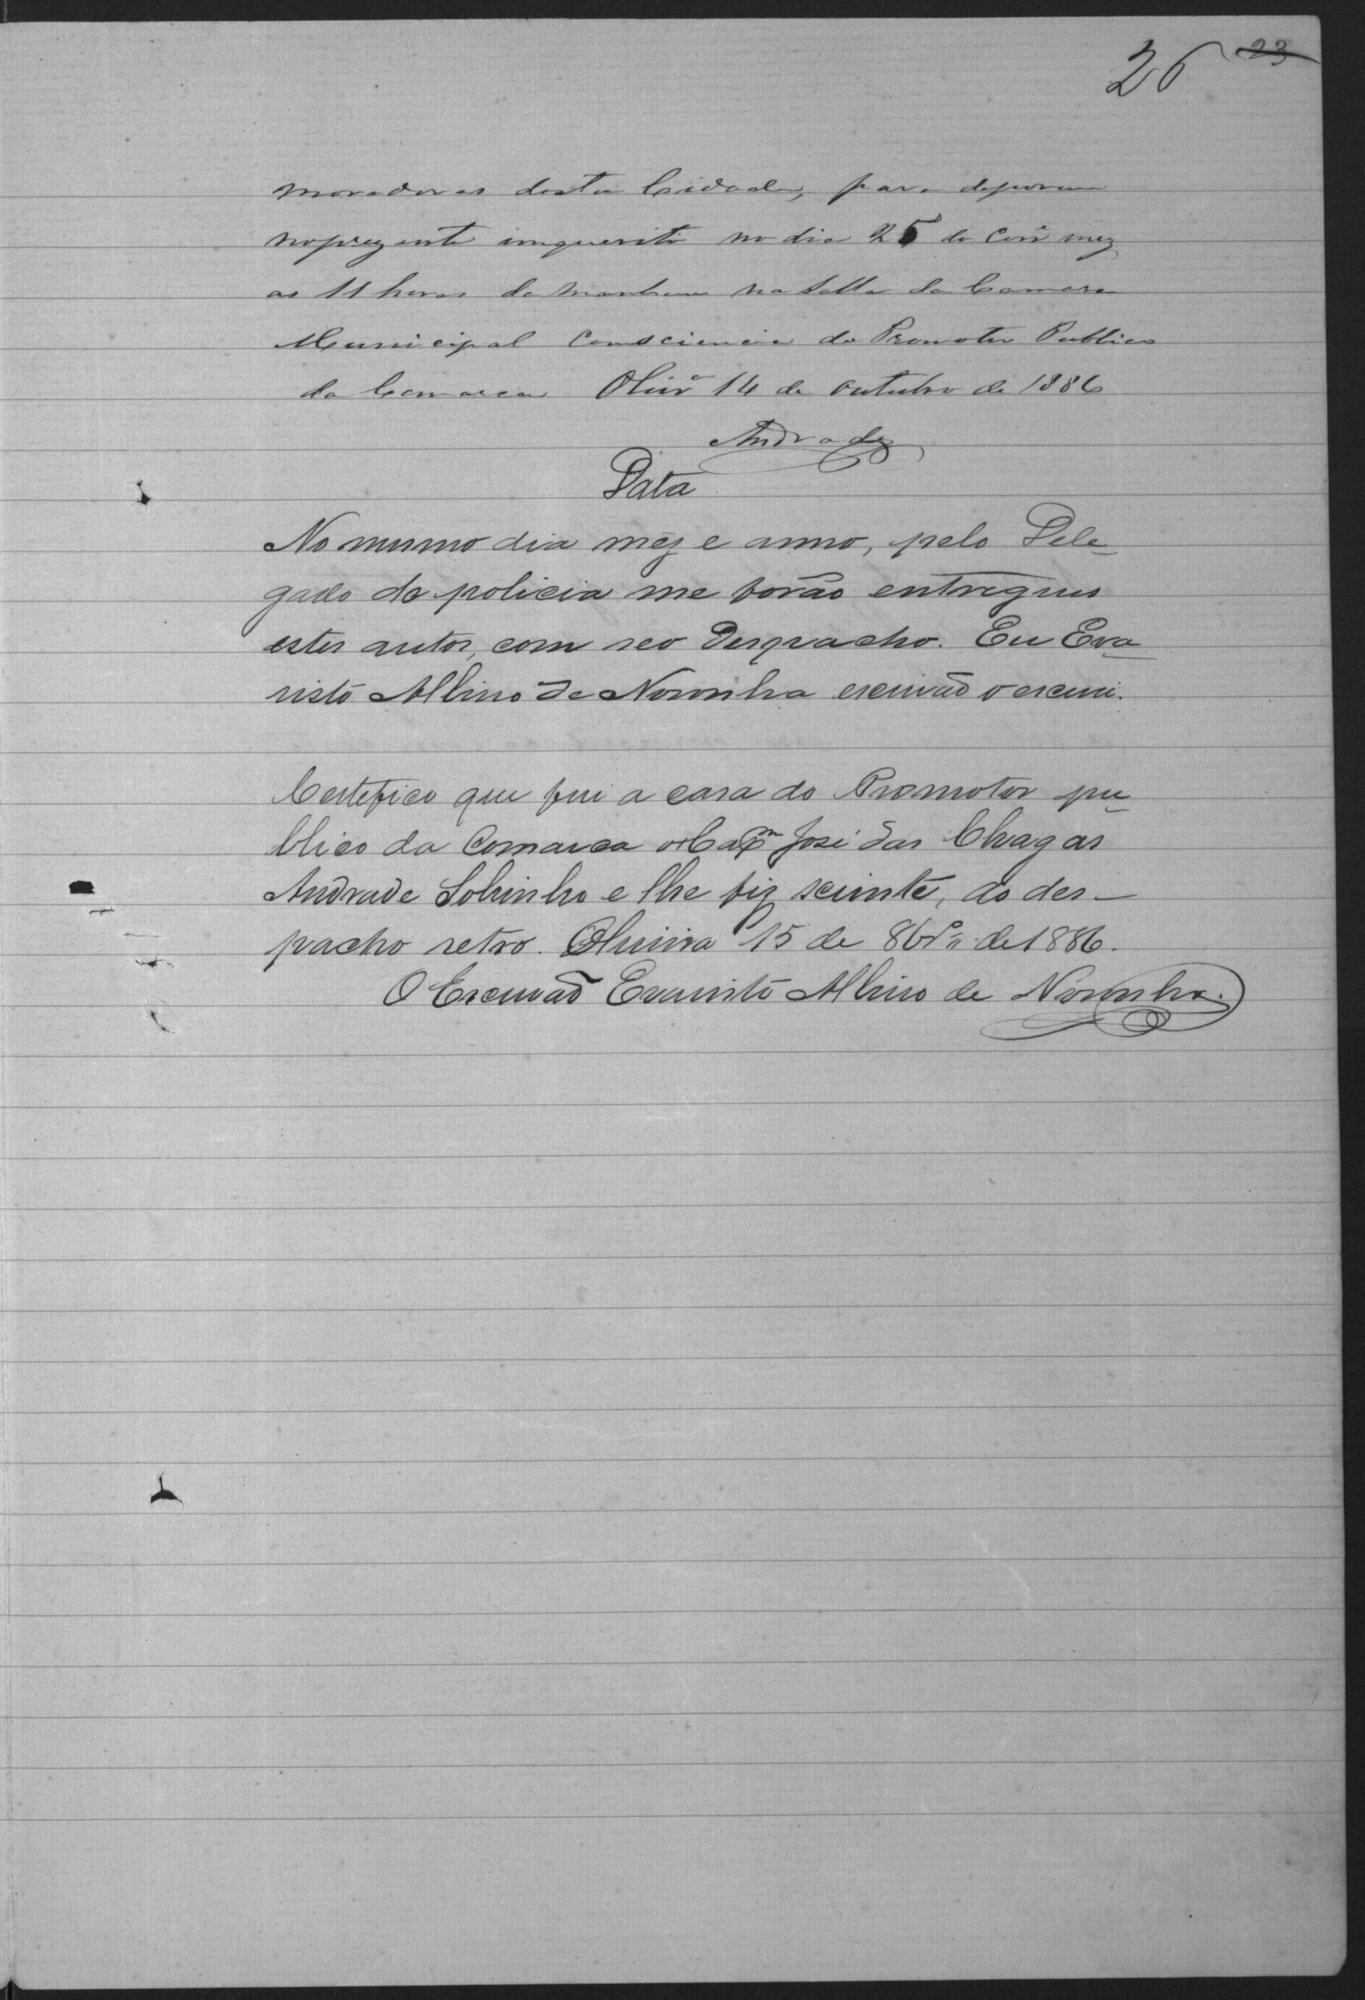 26 23
moradores desta Cidade, para deporem
no prezente inquerito no dia 25 do Corr̃ mez
as 11 horas da manhan na Salla da Camara
Municipal Comsciencia do Promotor Publico
da Comarca Olivrª 14 de Outubro de 1886
Andrade
Data
No mesmo dia mêz e anno, pelo Dele-
gado de policia me forão entregues
estes autos, com seo Despacho. Eu Eva-
risto Albino de Noronha escrivão o escrevi.
Certefico que fui a casa do Promotor pu-
blico da Comarca o Capᵐ José das Chagas
Andrade Sobrinho e lhe fiz sciente, do des-
pacho retro. Oliveira 15 de 8brº de 1886.
O Escrivão Evaristo Albino de Noronha.